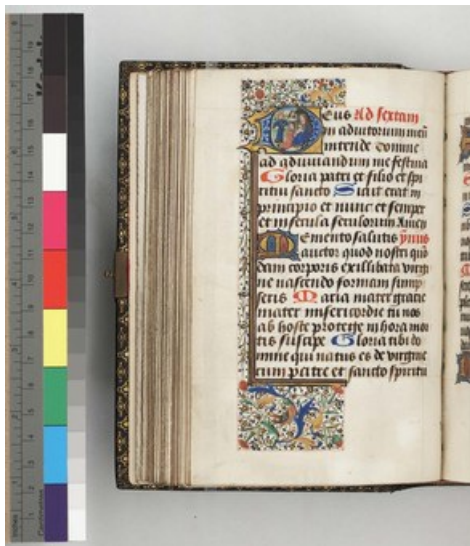 Eus Ad sextam
in adiutorium meū
intende domine
ad adiuuandum me festina
Gloria patri et filio et spi
ritui sancto Sicut erat in
principio et nunc et semper
et in secula seculorum Amen
Memento salutis ymnus
auctor quod nostri quō
dam corporis ex illibata virgi
ne nascendo formam sump
seris Maria mater gracie
mater misericordie tu nos
ab hoste protege in hora mor
tis suscipe Gloria tibi do
mine qui natus es de virgine
cum patre et sancto spiritu